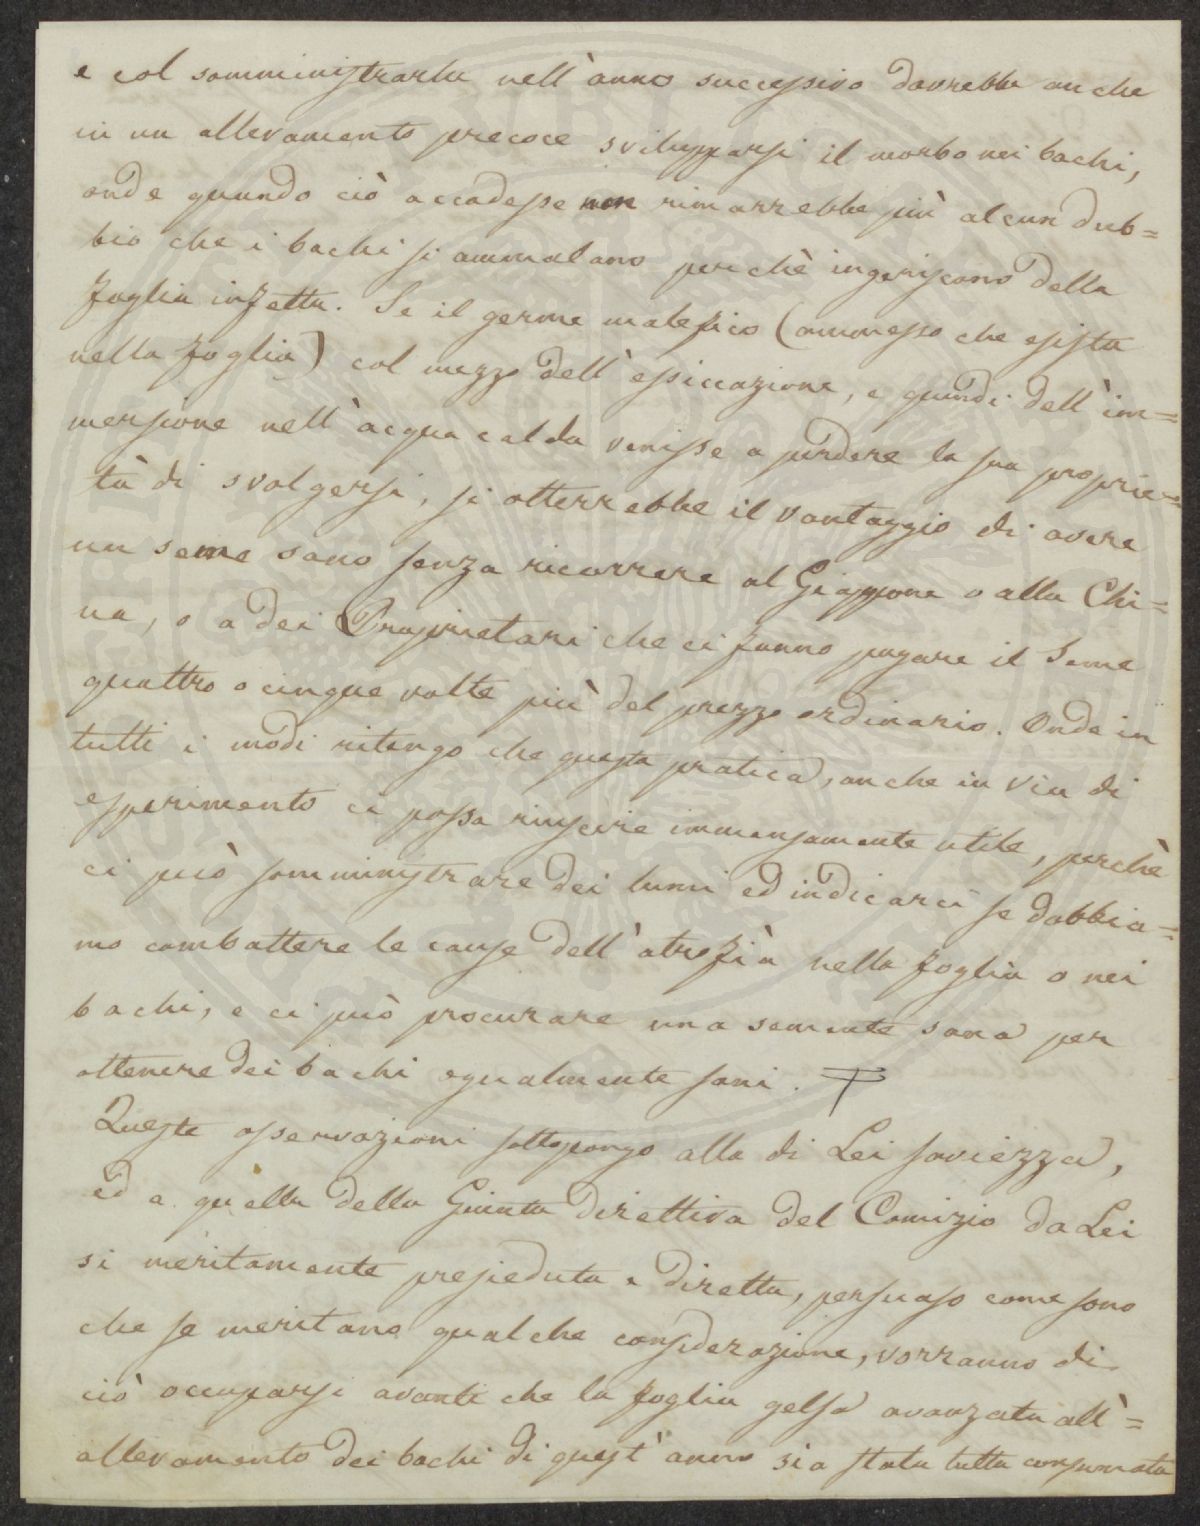 e col somministrarla nell'anno successivo dovrebbe anche
in un allevamento precoce svilupparsi il morbo nei bachi,
onde quando ciò accadesse non rimarrebbe più alcun dub=
bio che i bachi si ammalano perchè ingeriscono della
foglia infetta. Se il germe malefico (ammesso che esista
nella foglia) col mezzo dell'essiccazione, e quindi dell'im=
mersione nell'acqua calda venisse a perdere la sua proprie=
tà di svolgersi, si otterrebbe il vantaggio di avere
un seme sano senza ricorrere al Giappone o alla Chi=
na, o a dei Proprietari che ci fanno pagare il Seme
quattro o cinque volte più del prezzo ordinario. Onde in
tutti i modi ritengo che questa pratica, anche in via di
esperimento ci possa riuscire immensamente utile, perchè
ci può somministrare dei lumi ed indicarci se dobbia=
mo combattere le cause dell'atrofià nella foglia o nei
bachi, e ci può procurare una semente sana per
ottenere dei bachi egualmente sani.
Queste osservazioni sottopongo alla di Lei saviezza,
ed a quella della Giunta direttiva del Comizio da Lei
si meritamente presieduta e diretta, persuaso come sono
che se meritano qualche considerazione, vorranno di
ciò occuparsi avanti che la foglia gelsa avanzata all'=
allevamento dei bachi di quest'anno sia stata tutta consumata